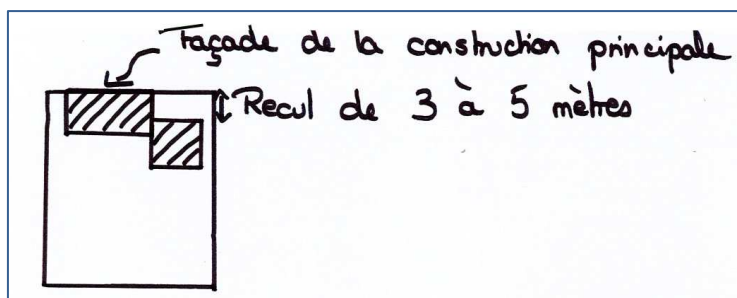 Façade de la construction principale
Recul de 3 à 5 mètres